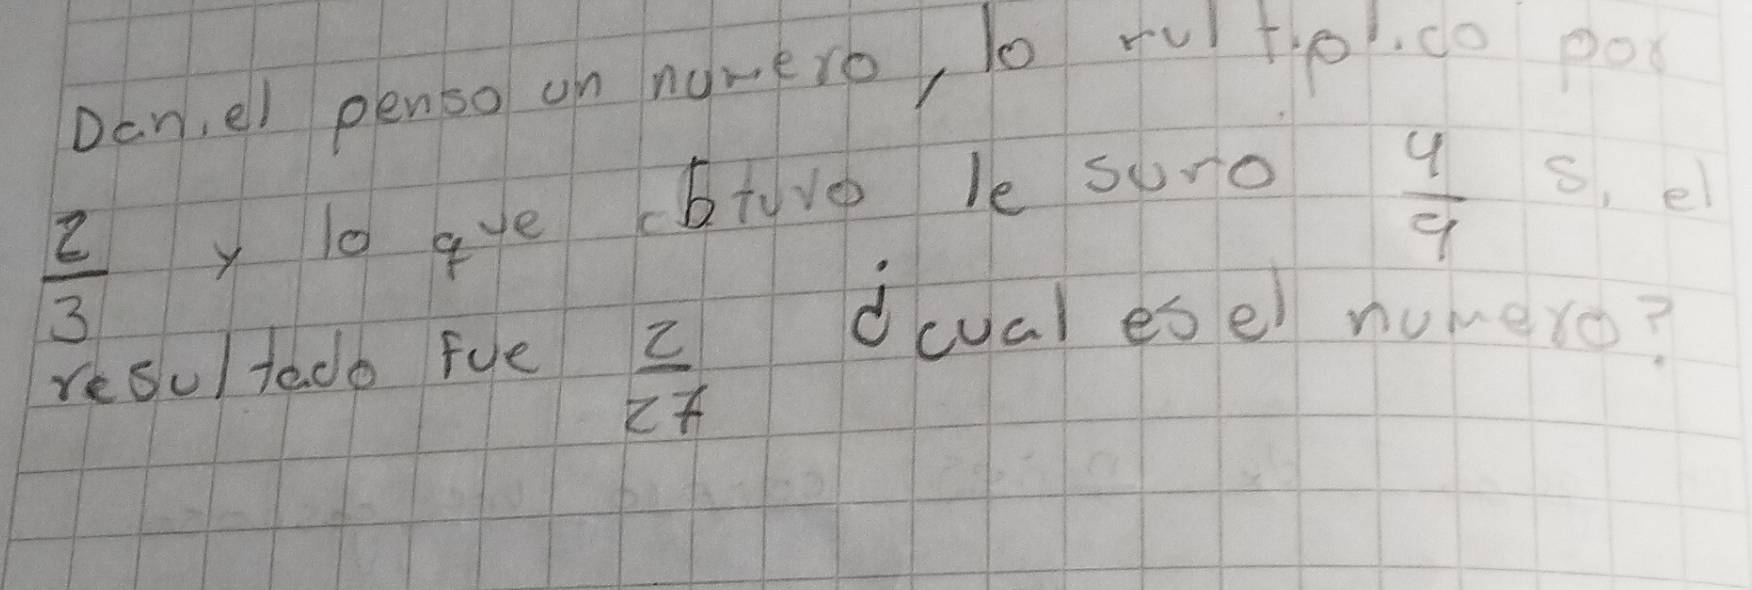 Daniel penso un numero, lo multiplico por
2/3 y lo que obtuvo le sumo 4/9 si el
resultado fue 2/27 ¿cual es el numero?